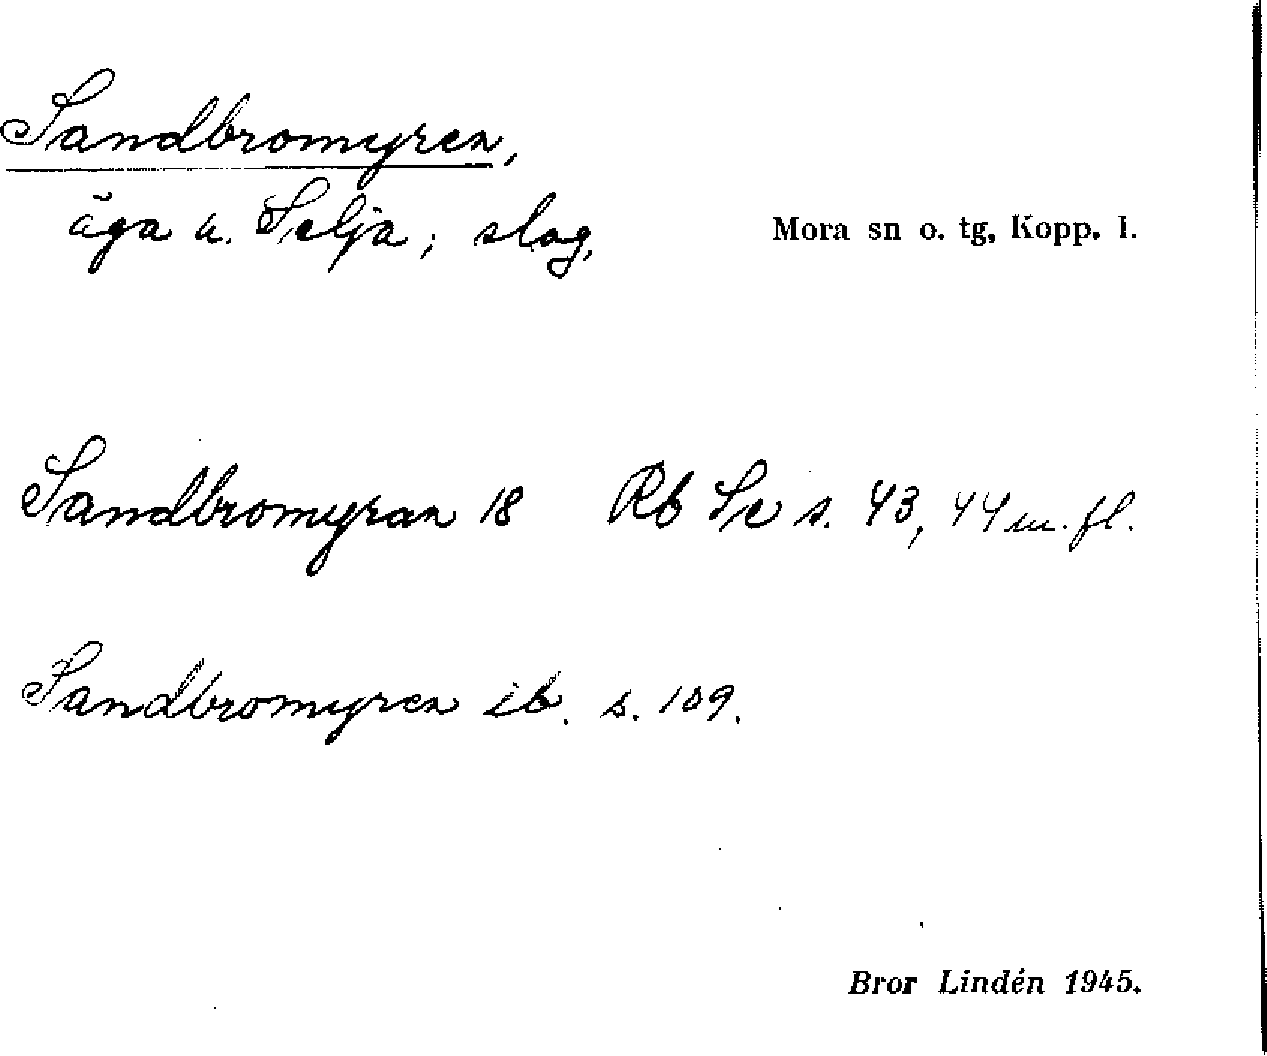 Sandbromyren,
äga u. Selja; slog.
Mora sn o. tg, Kopp. l.
Sandbromyran 18 Rb Se s. 43, 44 m. fl.
Sandbromyren ib. s. 109.
Bror Lindén 1945.